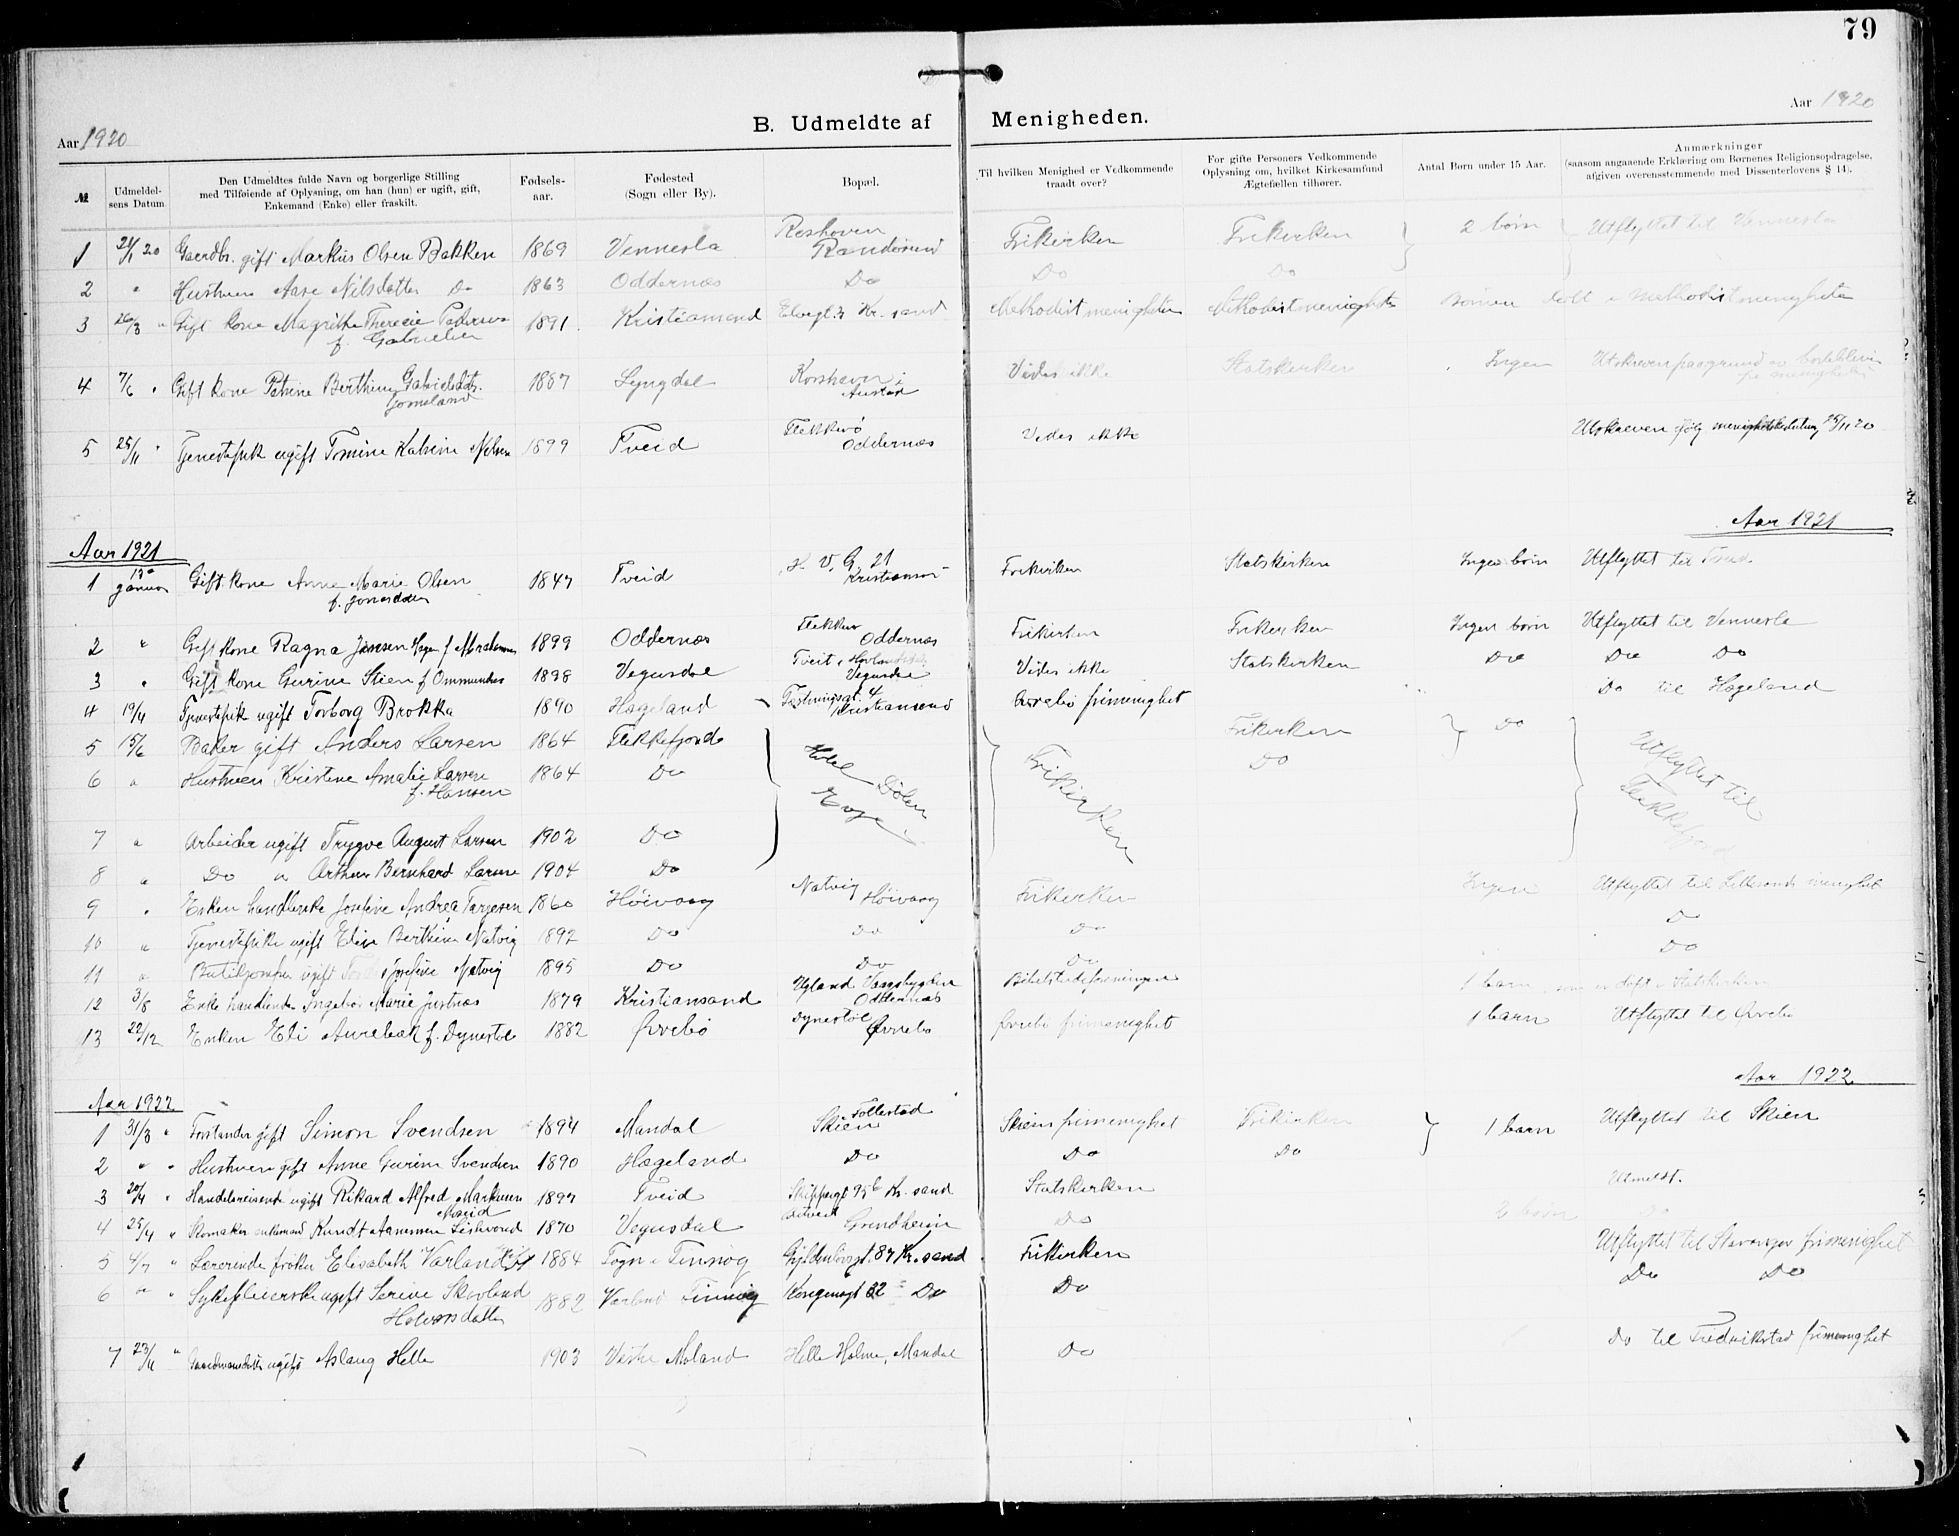 79
Aar 1920
B. Udmeldte af Menigheden.
Aar 1920
№
Udmeldelsens Datum.
Den Udmeldtes fulde Navn og borgerlige Stilling
med Tilføiende af Oplysning, om han (hun) er ugift, gift,
Enkemand (Enke) eller fraskilt.
Fødselsaar.
Fødested
(Sogn eller By).
Bopæl.
Til hvilken Menighed er Vedkommende
traadt over?
For gifte Personers Vedkommende
Oplysning om, hvilket Kirkesamfund
Ægtefællen tilhører.
Antal Børn under 15 Aar.
Anmærkninger
(saasom angaaende Erklæring om Børnenes Religionsopdragelse,
afgiven overensstemmende med Dissenterlovens § 14).
1 24/1 20 Gaardbr. gift Markus Olsen Bakken 1869 Vennesla Randøsund Frikirken Frikirken 2 børn Utflyttet til Vennesla
2 " Hustruen Aase Nilsdatter Do 1863 Oddernæs Do Do Do
3 26/3 " Gift kone Magrithe Therecie Pedersen 1891 Kristiansand Elvegt. Kr. sand Methodistmenigheten Methodistmenigheten Børnene døbt i Methodistmenigheten
f. Gabrielsen
4 7/6 " Gift kone Petrine Berthine Gabrielsdtr. 1867 Lyngdal Korshavn i Vides ikke Statskirken Ingen
Austad
5 25/11 " Tjenestepike ugift Tomine Katrine Nilsen 1899 Tveid Flekkerø Vides ikke Utskreven ifølg menighetsbeslutning 25/11 20
Oddernæs
Aar 1921
Aar 1921
1 januar Gift kone Anne Marie Olsen 1847 Tveid H. V. G. 21 Frikirken Statskirken Ingen børn Utflyttet til Tveid.
f. Jonasdatter Kristiansand
2 " Gift kone Ragna Jansen 1899 Oddernæs Flekkerø Frikirken Frikirken Ingen børn Utflyttet til Vennesla
Oddernæs
3 " Gift kone Gurine Stien f Ommundsen 1898 Vegusdal Tveit Vides ikke Statskirken Do Do Do
Vegusdal
4 19/4 Tjenestepik ugift Torborg Brokka 1890 Hægeland Festningsgt. 4 Øvrebø frimenighet Do til Hægeland
Kristiansand
5 15/6 Baker gift Anders Larsen 1864 Flekkefjord Frikirken Frikirken Do Utflyttet til Flekkefjord
6 " Hustruen Kristine Amalie Larsen 1864 Do Do
f. Hansen
7 " Arbeider ugift Trygve August Larsen 1902 Do
8 " Do " Arthur Bernhard Larsen 1904 Do
9 " Enken handlerske Josefine Andrea Tarjesen 1860 Høivaag Natvig Høivaag Frikirken Ingen Utflyttet til Lillesands menighet
10 " Tjenestepike ugift Elise Berthine Natvig 1892 Do Do Do Do
11 " ugift Josefine Natvig 1895 Do Do Do Do
12 3/8 Enke handlende Ingebør Marie Justnæs 1879 Kristiansand Ugland Vaagsbygden 1 barn som er døpt i Statskirken
Oddernæs
13 22/12 Enken Eli Aurebæk f. Dynestøl 1882 Øvrebø Dynestøl Øvrebø frimenighet 1 barn Utflyttet til Øvrebø
Øvrebø
Aar 1922
Aar 1922
1 31/3 " Forstander gift Simon Svendsen 1894 Mandal Follestad Skiens frimenighet Frikirken 1 barn Utflyttet til Skien
Skien
2 " " Hustruen gift Anne Gurine Svendsen 1890 Hægeland Do Do Do
3 20/4 " Handelsreisende ugift Rikard Alfred Markusen 1897 Tveid Skippergt 95b Kr. sand Statskirken Utmeldt.
4 25/4 " Skomaker enkemand Knudt Aanensen 1870 Vegusdal Grindheim Do 2 børn Do
5 4/7 " Lærerinde frøken Elisabeth Varland 1884 Sogn i Tinnog Gyldenløvsgt. 87 Kr. sand Frikirken Utflyttet til Stavanger frimenighet
6 " " Sykepleierske ugift Serine Skavland 1882 Kongensgt 32 Do Do Do Do
Halvorsdatter
7 23/11 " ugift Aslaug Helle 1903 Vestre Moland Helle Holme, Mandal Do Do til Fredrikstad frimenighet